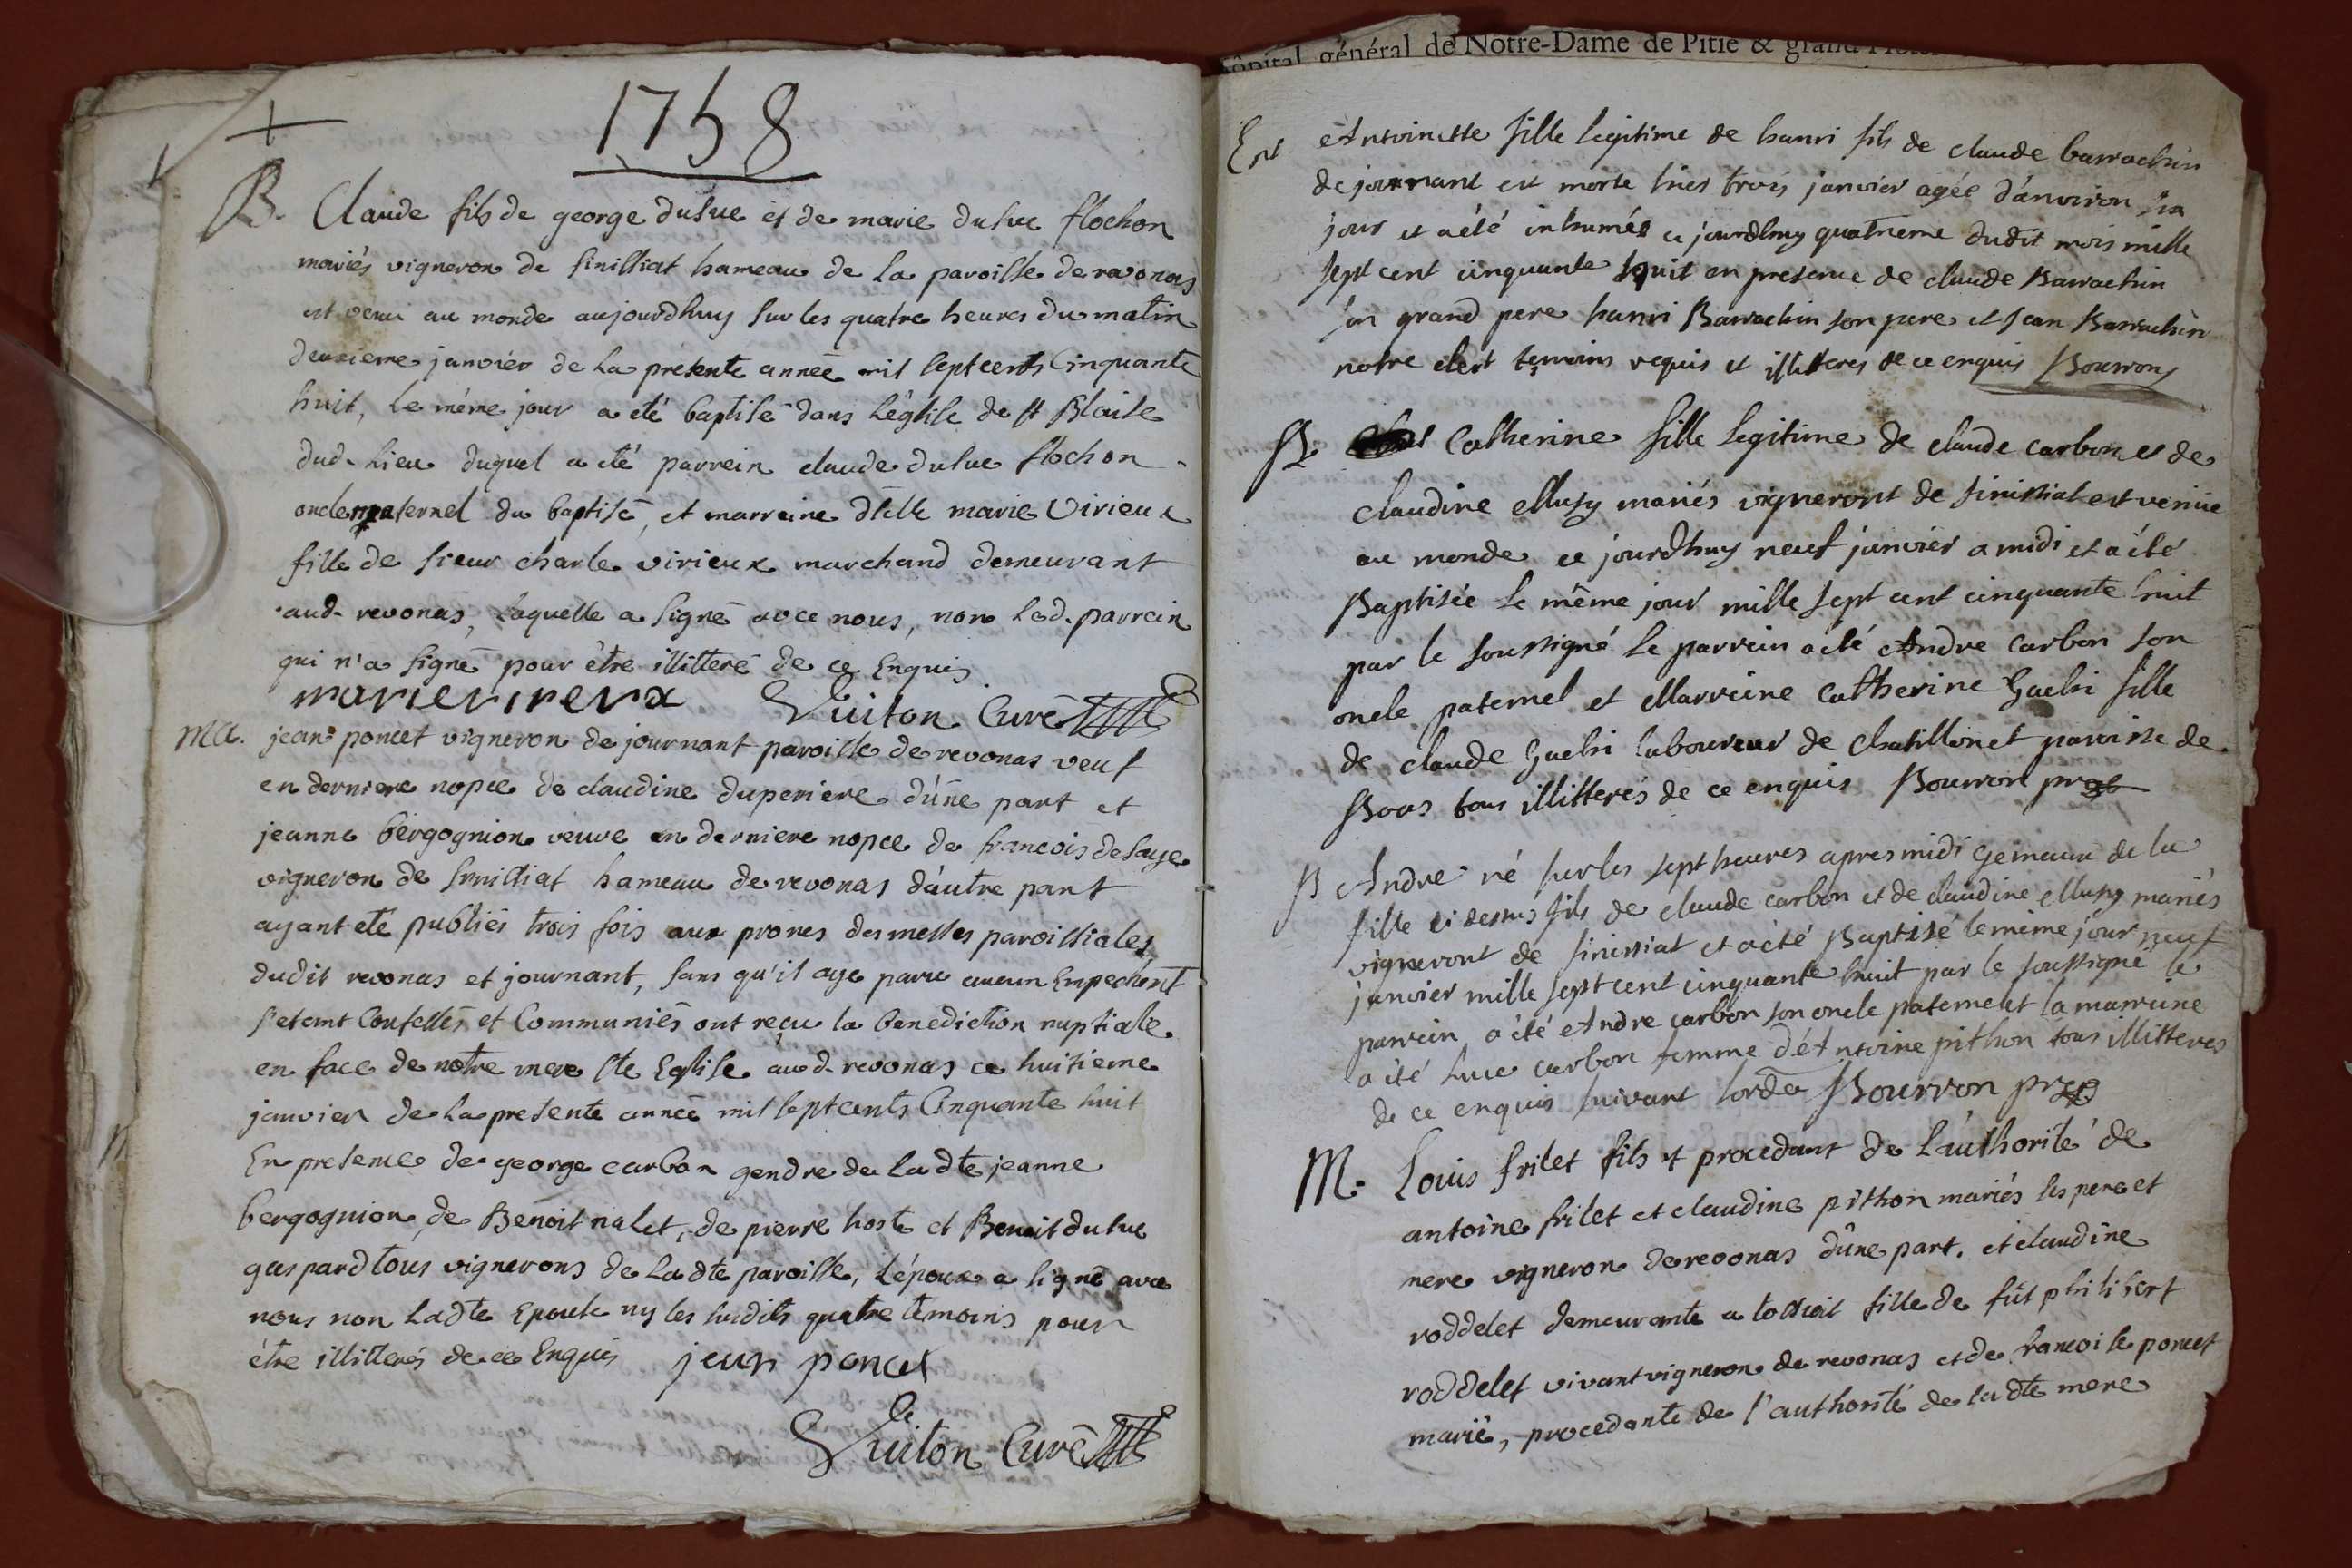 1758
B. Claude fils de george dusuc et de marie dusuc flochon
mariés vigneron de sinissiat hameau de la paroisse de revonas
est venu au monde aujourdhuy sur les quatre heures du matin
deuxieme janvier de la presente année mil septcents Cinquante
huit, le même jour a eté baptisé dans léglise de st Blaise
dud. lieu duquel a eté parrein claude dusuc flochon
oncle paternel du baptisé, et marreine dlelle marie Virieux
fille de sieur charle virieux marchand demeurant
aud. revonas, laquelle a signé avce nous, non led. parrein
qui n'a signé pour être illitteré de ce Enquis
marie vireux Guiton Curé
Ma. jean poncet vigneron de journant paroisse de revonas veuf
en derniere nopce de claudine duperiere d'une part et
jeanne bergognion veuve en derniere nopce de francois desaye
vigneron de sinissiat hameau de revonas d'autre part
ayant eté publiés trois fois aux prones des messes paroissiales
dudit revonas et journant, sans qu'il aye paru aucun Empechent
s'etant Confessés et Communiés ont reçu la benediction nuptiale
en face de notre mere ste Eglise aud. revonas ce huitieme
janvier de la presente année mil septcents Cinquante huit
En presence de george carbon gendre de ladte jeanne
bergognion, de Benoit nalet, de pierre hoste et Benoit dusuc
gaspard tous vignerons de ladte paroisse, lépoux a signé avce
nous non ladte Epouse ny les susdits quatre temoins pour
étre illitterés de ce Enquis jean poncet
Guiton Curé
Ent Antoinette fille legitime de hanri fils de claude barrachin
de journant est morte hier trois janvier agée d'anviron six
jour et a été inhumée ce jourdhuy quatrieme dudit mois mille
sept cent cinquante huit en presence de claude Barrachin
son grand pere hanri Barrachin son pere et Jean Barrachin
notre clert temoins requis et illitteres de ce enquis Bourron
B. Catherine fille legitime de claude carbon et de
claudine Musy mariés vigneront de sinissiat est venüe
au monde ce jourdhuy neuf janvier a midi et a été
Baptisée le même jour mille sept cent cinquante huit
par le soussigné le parrein a eté Andre carbon son
oncle paternel et Marreine Catherine Guehi fille
de claude Guehi laboureur de chatillonet paroisse de
Boas tous illitterés de ce enquis Bourron
B Andre né sur les sept heures apres midi gemeau de la
fille ci dessus fils de claude carbon et de claudine Musy mariés
vigneront de sinissiat et a été Baptisé le même jour neuf
janvier mille sept cent cinquante huit par le soussigné le
parrein a été Andre carbon son oncle paternel et la marreine
a été Luce carbon femme d'Antoine pithon tous illitteres
de ce enquis suivant lorde Bourron
M. Louis frilet fils et procedant de l'authorité de
antoine frilet et claudine pithon mariés ses pere et
mere vigneron de revonas d'une part. et claudine
roddelet demeurante a tossiat fille de fût philibert
roddelet vivant vigneron de revonas et de francoise poncet
marié, procedante de l'authorité de ladte mere
ôpital général de Notre-Dame de Pitié & grand